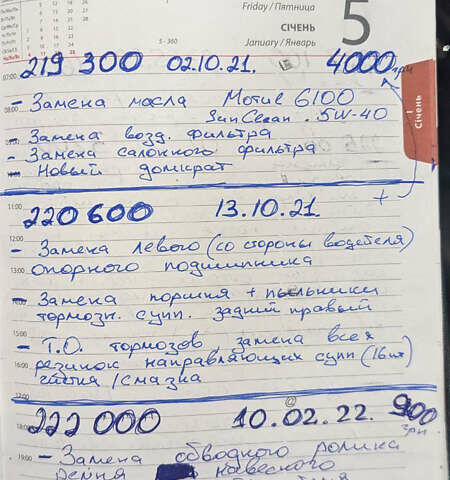 Friday / П'ятниця
СІЧЕНЬ
January / Январь
5
5 - 360
Січень
219 300 02.10.21. 4000 грн
07:00
08:00
- Замена масла Мотиє 6100
SynClean . 5W-40
- Замена возд. фильтра
- Замена салонного фильтра
- Новый домкрат
+
11:00
220 600 13.10.21.
12:00
- Замена левого (со стороны водителя)
13:00
опорного подшипника
- Замена поршня + пыльники
тормозн. супп. задний правый
15:00
- Т.О. тормозов, замена всех
16:00
резинок направляющих супп (16шт)
чистка / смазка
17:00
222 000 10.02.22. 900
грн
18:00
19:00
- Замена обводного ролика
ремня навесного